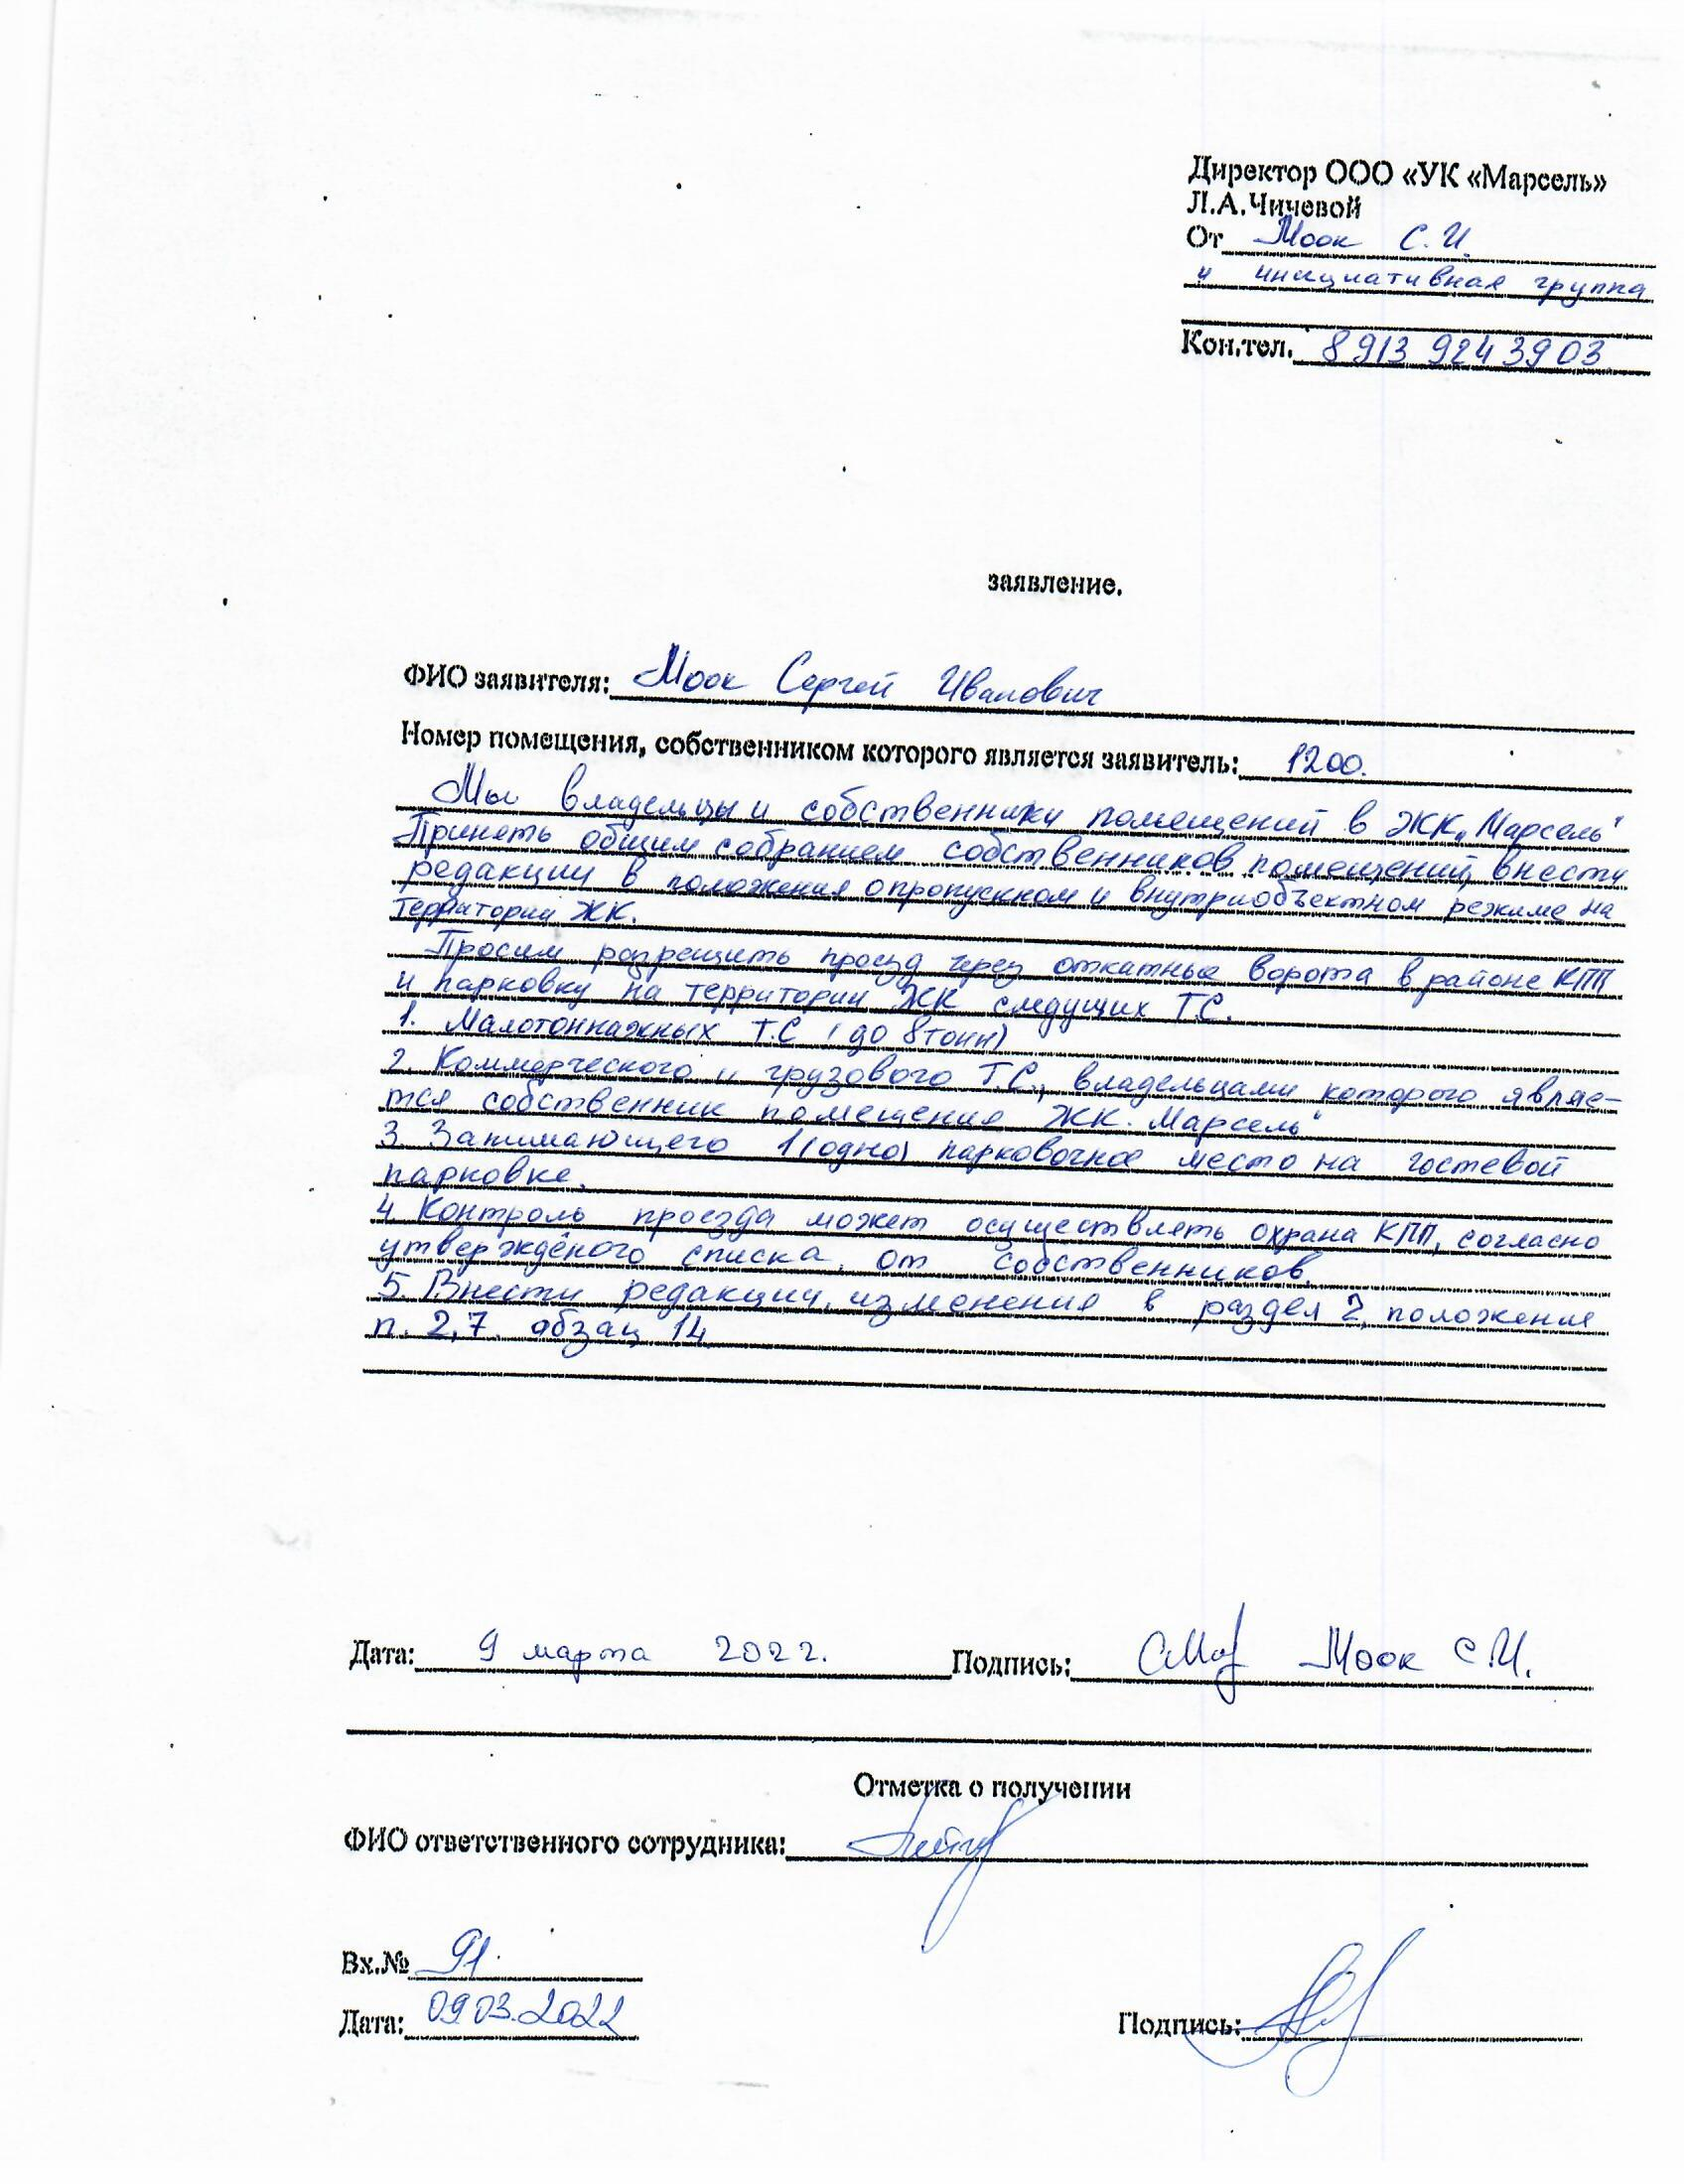 Директор ООО «УК «Марсель»
Л.А.Чичевой
От Моок С.И.
и инициативная группа
Кон.тел. 8913 9243903
заявление.
ФИО заявителя: Моок Сергей Иванович
Номер помещения, собственником которого является заявитель: 1200.
Мы владельцы и собственники помещений в ЖК „Марсель"
Принять общим собранием собственников помещений, внести
редакции в положения о пропускном и внутриобъектном режиме на
территории ЖК.
Просим разрешить проезд через откатные ворота в районе КПП
и парковку на территории ЖК следущих Т.С.
1. Малотоннажных Т.С (до 8 тонн)
2. Коммерческого и грузового Т.С., владельцами которого являе-
тся собственник помещения ЖК. Марсель"
3 Занимающего 1(одно) парковочное место на гостевой
парковке.
4 Контроль проезда может осуществлять охрана КПП, согласно
утверждёного списка, от собственников.
5. Внести редакции, изменения в раздел 2, положение
п. 2,7. абзац 14
Дата: 9 марта 2022. Подпись: Моок С.И.
Отметка о получении
ФИО ответственного сотрудника:
Вх.№ 91.
Дата: 09.03.2022 Подпись: